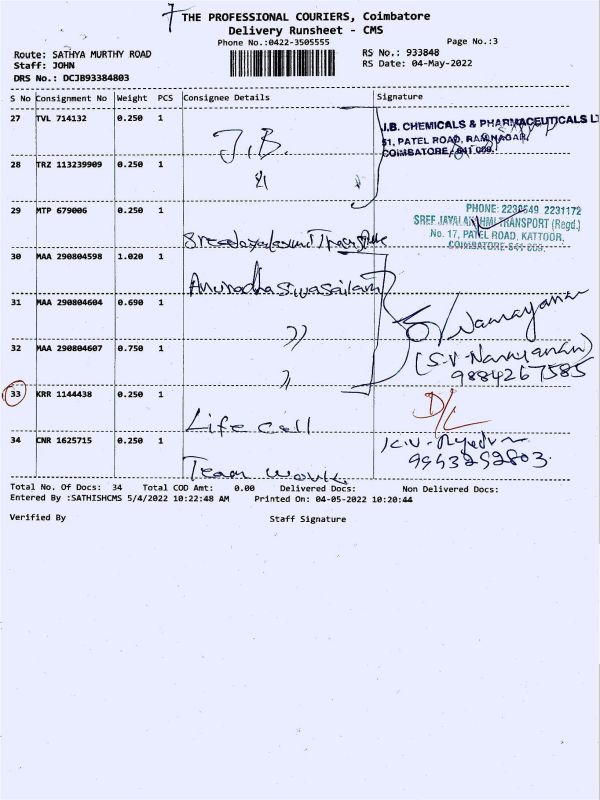 7
THE PROFESSIONAL COURIERS, Coimbatore
Delivery Runsheet - CMS
Phone No.:0422-3505555
Page No.:3
Route: SATHYA MURTHY ROAD
RS No.: 933848
Staff: JOHN
RS Date: 04-May-2022
DRS No.: DCJB93384803
S No Consignment No Weight PCS Consignee Details Signature
27 TVL 714132 0.250 1
J.B.
J.B. CHEMICALS & PHARMACEUTICALS LT
51, PATEL ROAD, RAM NAGAR,
COIMBATORE, 641 009.
28 TRZ 113239909 0.250 1
29 MTP 679006 0.250 1
PHONE: 2230549 2231172
SREE JAYALAKSHMI TRANSPORT (Regd.)
No. 17, PATEL ROAD, KATTOOR,
COIMBATORE-641 009.
30 MAA 290804598 1.020 1
Anuradha Sivasailam
31 MAA 290804604 0.690 1
"
S V Narayanan
(S.V. Narayanan)
9884267585
32 MAA 290804607 0.750 1
"
33 KRR 1144438 0.250 1
Life Cell
D/L
34 CNR 1625715 0.250 1
Team work
K.V.
9943292803
Total No. Of Docs: 34 Total COD Amt: 0.00 Delivered Docs: Non Delivered Docs:
Entered By :SATHISHCMS 5/4/2022 10:22:48 AM Printed On: 04-05-2022 10:20:44
Verified By Staff Signature